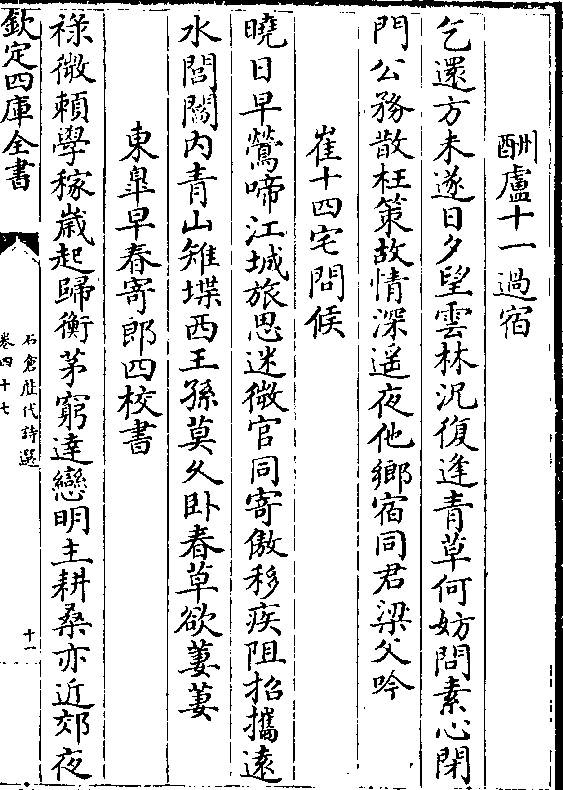 酬盧十一過宿
乞還方未遂日夕望雲林況復逢青草何妨問素心閉
門公務散枉策故情深遥夜他鄉宿同君梁父吟
崔十四宅問候
曉日早鶯啼江城旅思迷微官同寄傲移疾阻招攜遠
水閭閻内青山雉堞西王孫莫久卧春草欲萋萋
東臯早春寄郎四校書
禄微賴學稼歲起歸衡茅窮達戀明主耕桑亦近郊夜
欽定四庫全書
石倉歴代詩選
卷四十七
十一